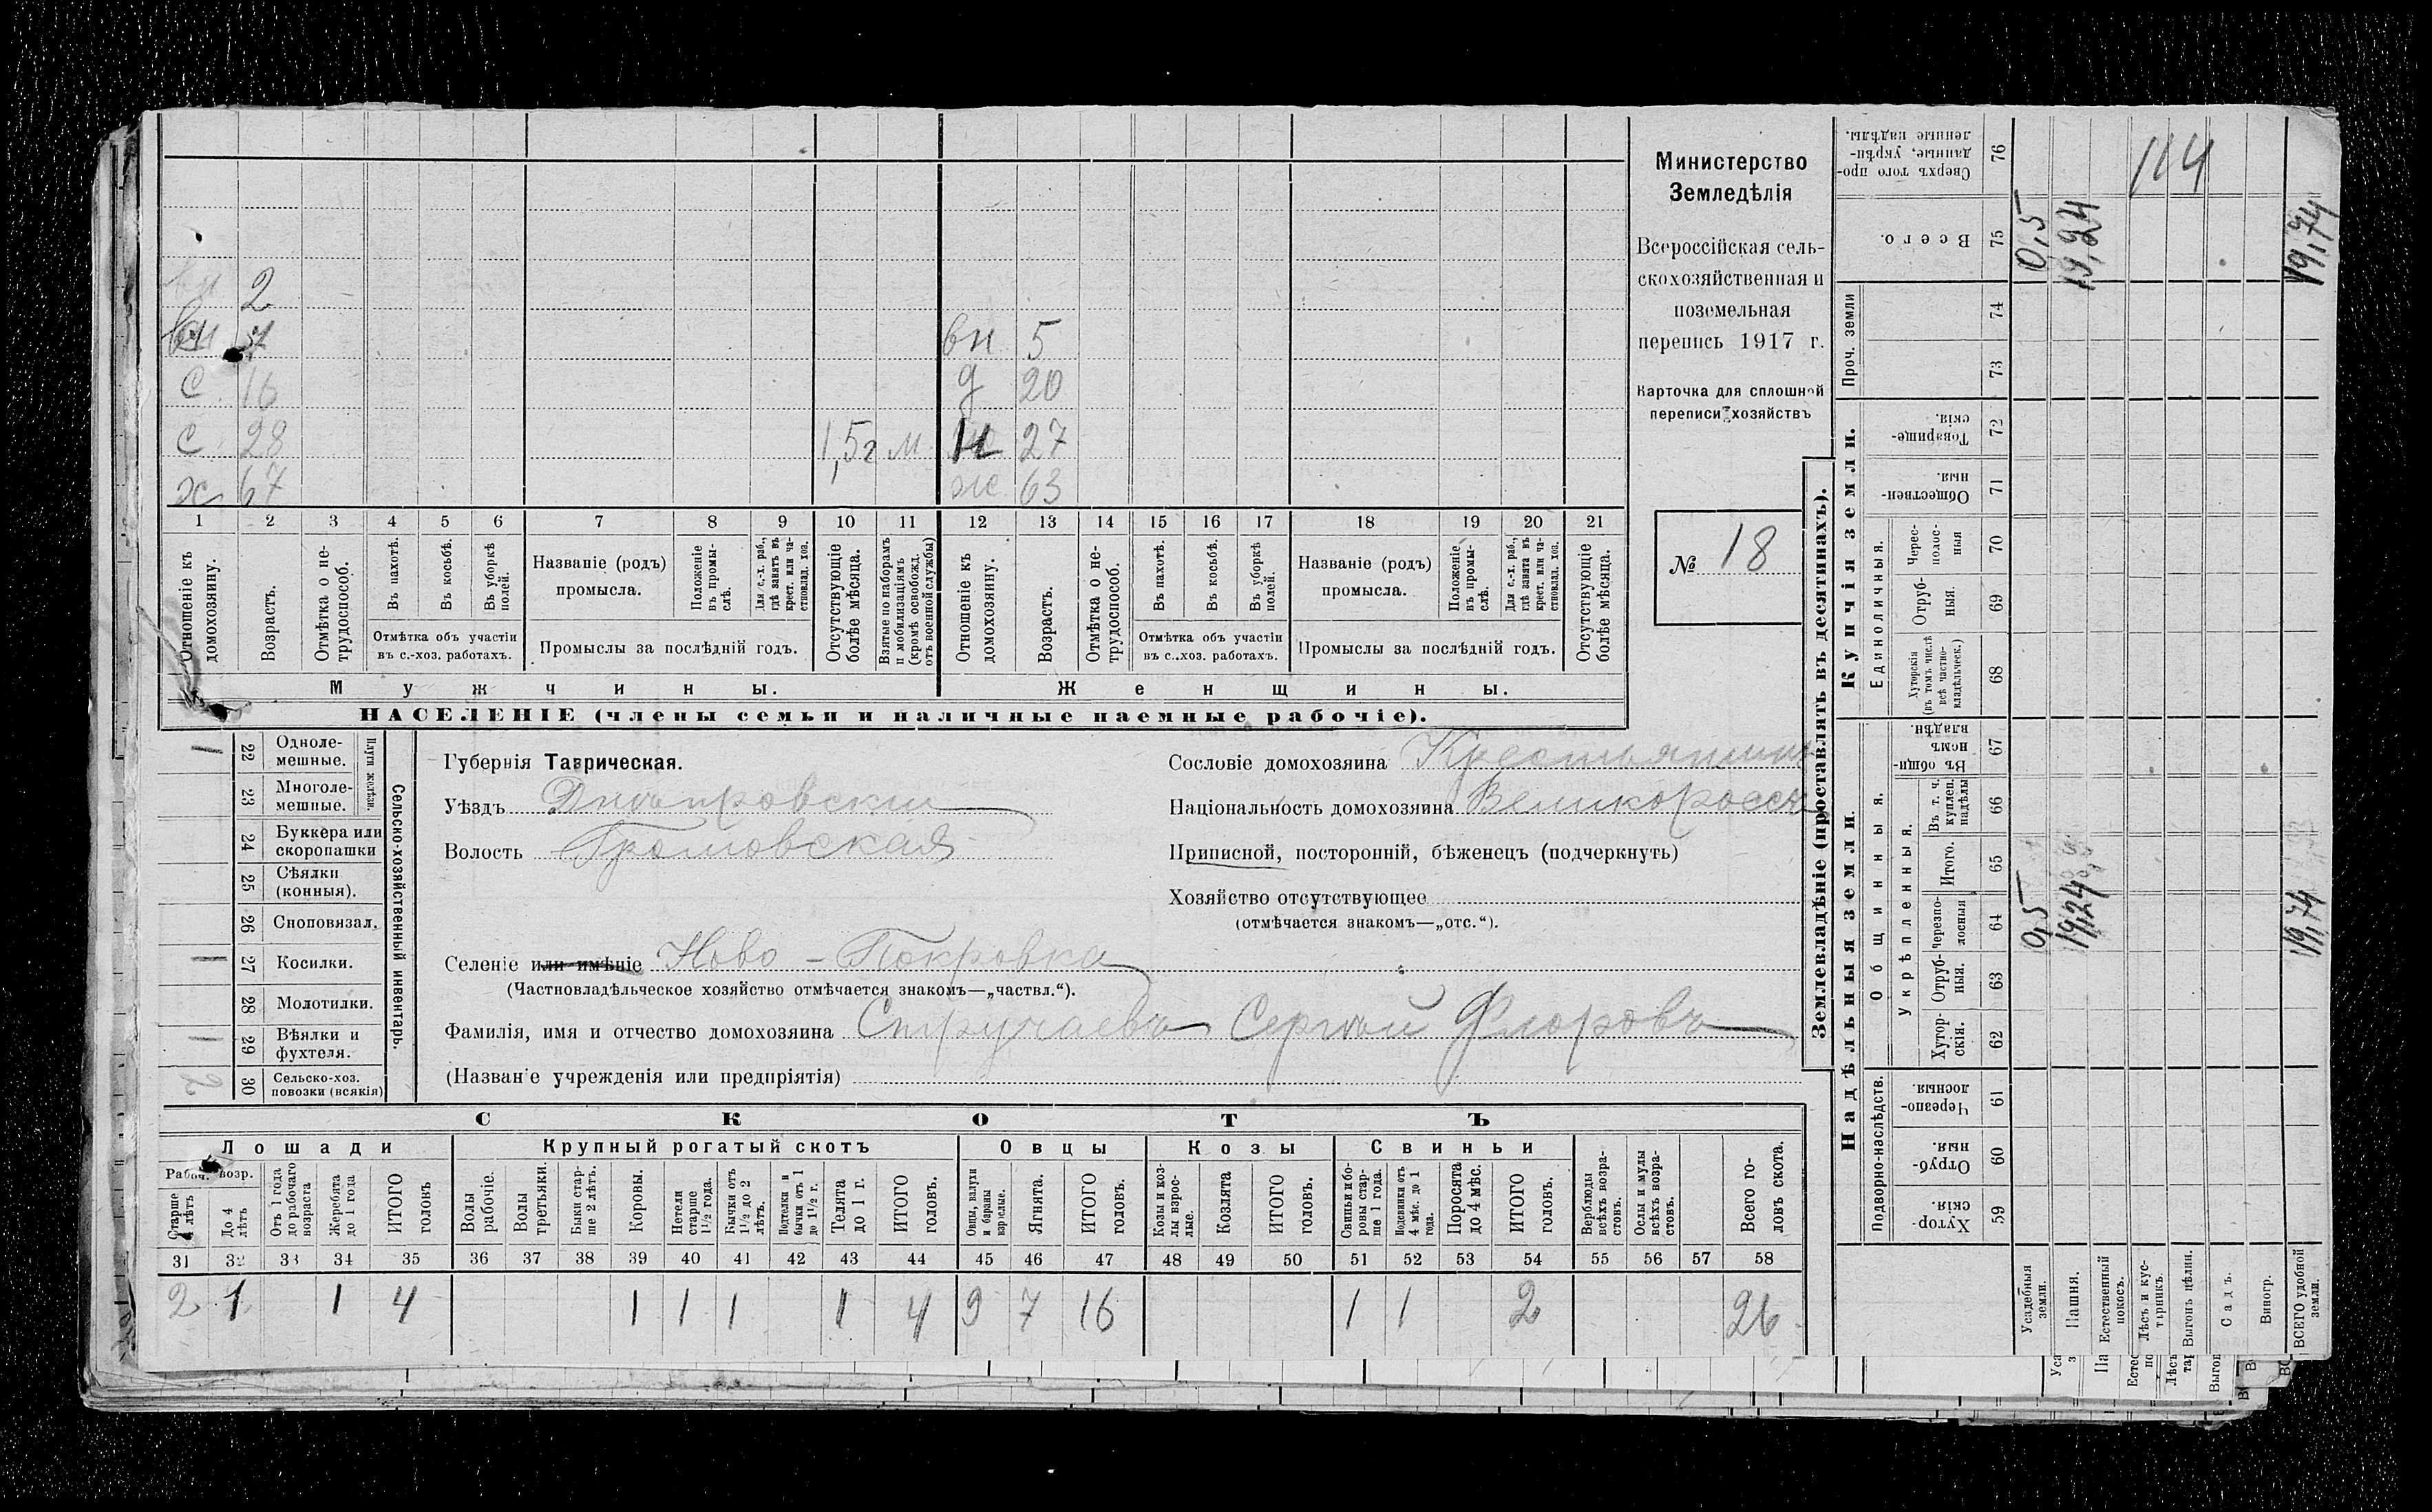 вн 2
вн
с 16
с 28 1,5 г м
х 67
вн 5
д 20
н 27
ж 63
1 2 3 4 5 6 7 8 9 10 11 12 13 14 15 16 17 18 19 20 21
Отношеніе къ домохозяину.
Возрастъ.
Отмѣтка о не-
трудоспособ.
Въ пахотѣ.
Въ косьбѣ.
Въ уборкѣ
полей.
Отмѣтка объ участіи
въ с.-хоз. работахъ.
Названіе (родъ)
промысла.
Положеніе
въ промы-
слѣ.
Для с.-х. раб.,
гдѣ занятъ въ
крест. или ча-
стновлад. хоз.
Промыслы за послѣдній годъ.
Отсутствующіе
болѣе мѣсяца.
Взятые по наборамъ
и мобилизаціямъ
(кромѣ освобожд.
отъ военной службы)
Отношеніе къ
домохозяину.
Возрастъ.
Отмѣтка о не-
трудоспособ.
Въ пахотѣ.
Въ косьбѣ.
Въ уборкѣ
полей.
Отмѣтка объ участіи
въ с.-хоз. работахъ.
Названіе (родъ)
промысла.
Положеніе
въ промы-
слѣ.
Для с.-х. раб.,
гдѣ занята въ
крест. или ча-
стновлад. хоз.
Промыслы за послѣдній годъ.
Отсутствующіе
болѣе мѣсяца.
Мужчины.
Женщины.
НАСЕЛЕНІЕ (члены семьи и наличные наемные рабочіе).
Министерство
Земледѣлія
Всероссійская сель-
скохозяйственная и
поземельная
перепись 1917 г.
Карточка для сплошной
переписи хозяйствъ
№ 18
1 22 Одноле-
мешные.
23 Многоле-
мешные.
Плуги желѣзн.
24 Буккера или
скоропашки
25 Сѣялки
(конныя).
26 Сноповязал.
1 27 Косилки.
28 Молотилки.
1 29 Вѣялки и
фухтеля.
2 30 Сельско-хоз.
повозки (всякія)
Сельско-хозяйственный инвентарь.
Губернія Таврическая.
Уѣздъ Днѣпровскій
Волость Громовская
Селеніе или имѣніе Ново-Покровка
(Частновладѣльческое хозяйство отмѣчается знакомъ—„частвл.“).
Фамилія, имя и отчество домохозяина Стручаевъ Сергѣй Флоровъ
(Названіе учрежденія или предпріятія)
Сословіе домохозяина Крестьянинъ
Національность домохозяина Великороссъ
Приписной, посторонній, бѣженецъ (подчеркнуть)
Хозяйство отсутствующее
(отмѣчается знакомъ—„отс.“).
СКОТЪ
Лошади
Крупный рогатый скотъ
Овцы
Козы
Свиньи
Рабоч. возр.
Старше
4 лѣтъ
До 4
лѣтъ
Отъ 1 года
до рабочаго
возраста
Жеребята
до 1 года
ИТОГО
головъ
Волы
рабочіе.
Волы
третьяки.
Быки стар-
ше 2 лѣтъ.
Коровы.
Нетели
старше
1½ года.
Бычки отъ
1½ до 2
лѣтъ.
Подтелки и
бычки отъ 1
до 1½ г.
Телята
до 1 г.
ИТОГО
головъ.
Овцы, валухи
и бараны
взрослые.
Ягнята.
ИТОГО
головъ.
Козы и коз-
лы взрос-
лые.
Козлята
ИТОГО
головъ.
Свиньи и бо-
ровы стар-
ше 1 года.
Подсвинки отъ
4 мѣс. до 1
года.
Поросята
до 4 мѣс.
ИТОГО
головъ.
Верблюды
всѣхъ возра-
стовъ.
Ослы и мулы
всѣхъ возра-
стовъ.
Всего го-
ловъ скота.
31 32 33 34 35 36 37 38 39 40 41 42 43 44 45 46 47 48 49 50 51 52 53 54 55 56 57 58
2 1 1 4 1 1 1 1 4 9 7 16 1 1 2 26
Землевладѣніе (проставлять въ десятинахъ).
Надѣльныя земли.
Купчія земли.
Проч. земли
Подворно-наслѣдств.
Общинныя.
Укрѣпленныя.
Единоличныя.
Хутор-
скія. 59
Отруб-
ныя. 60
Черезпо-
лосныя. 61
Хутор-
скія. 62
Отруб-
ныя. 63
Черезпо-
лосныя 64
Итого. 65
Въ т. ч.
куплен.
надѣлы 66
Въ общи-
номъ
владѣн. 67
Хуторскія
(въ томъ числѣ
всѣ частно-
владѣльческ.) 68
Отруб-
ныя. 69
Черес-
полос-
ныя 70
Обществен-
ныя. 71
Товарище-
скія. 72
73
74
Всего. 75
Сверхъ того про-
данные, укрѣп-
ленные надѣлы. 76
Усадебныя
земли. 0,5 0,5
Пашня. 19,24 19,24
Естественный
покосъ.
Лѣсъ и кус-
тарникъ.
Выгонъ цѣлин.
Садъ.
Виногр.
ВСЕГО удобной
земли. 19,74 19,74
114